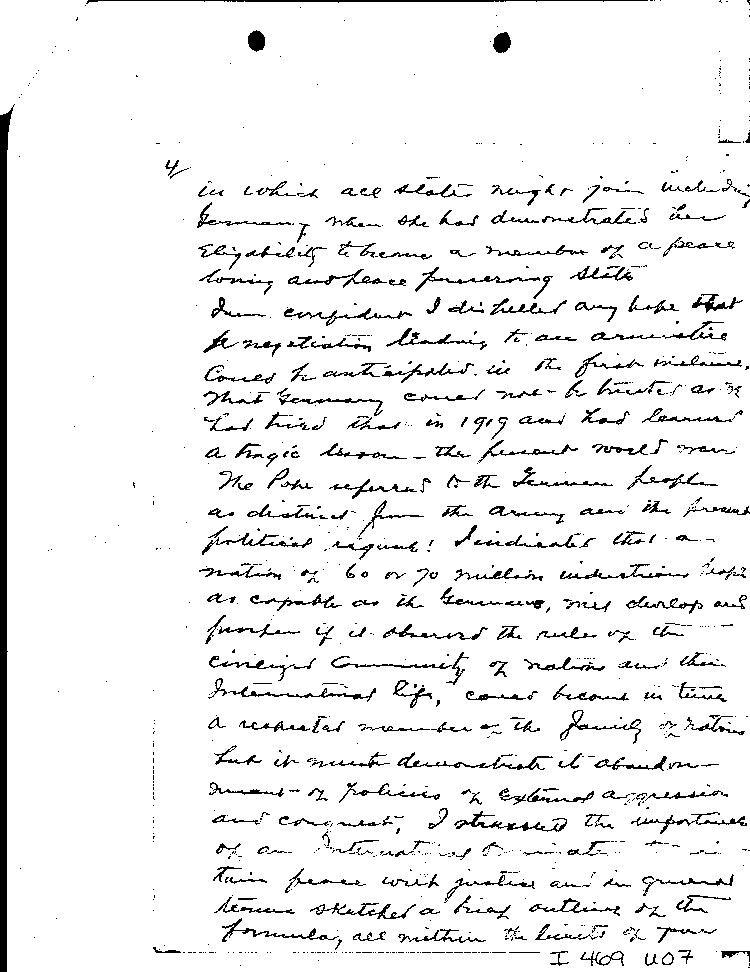 4/
in which all states might join including
Germany when she had demonstrated her
Eligability to become a member of a peace
loving and peace preserving State
I am confident I dispelled any hope that
a negotiation leading to an armistice
Could be anticipated in the first instance,
That Germany could not be trusted as we
had tried that in 1919 and had learned
a tragic lesson – the present world war
The Pope referred to the German people
as distinct from the army and the present
political regime! I indicated that a
nation of 60 or 70 million industrious people
as capable as the Germans, must develop and
prosper if it observed the rules of the
civilized Community of nations and their
International life, could become in time
a respected member of the Family of nations
but it must demonstrate it abandon-
ment of policies of external aggression
and conquest, I stressed the importance
of an International to
tain peace with justice and in general
terms sketched a brief outline of the
formula, all within the limits of your
I 469 U07